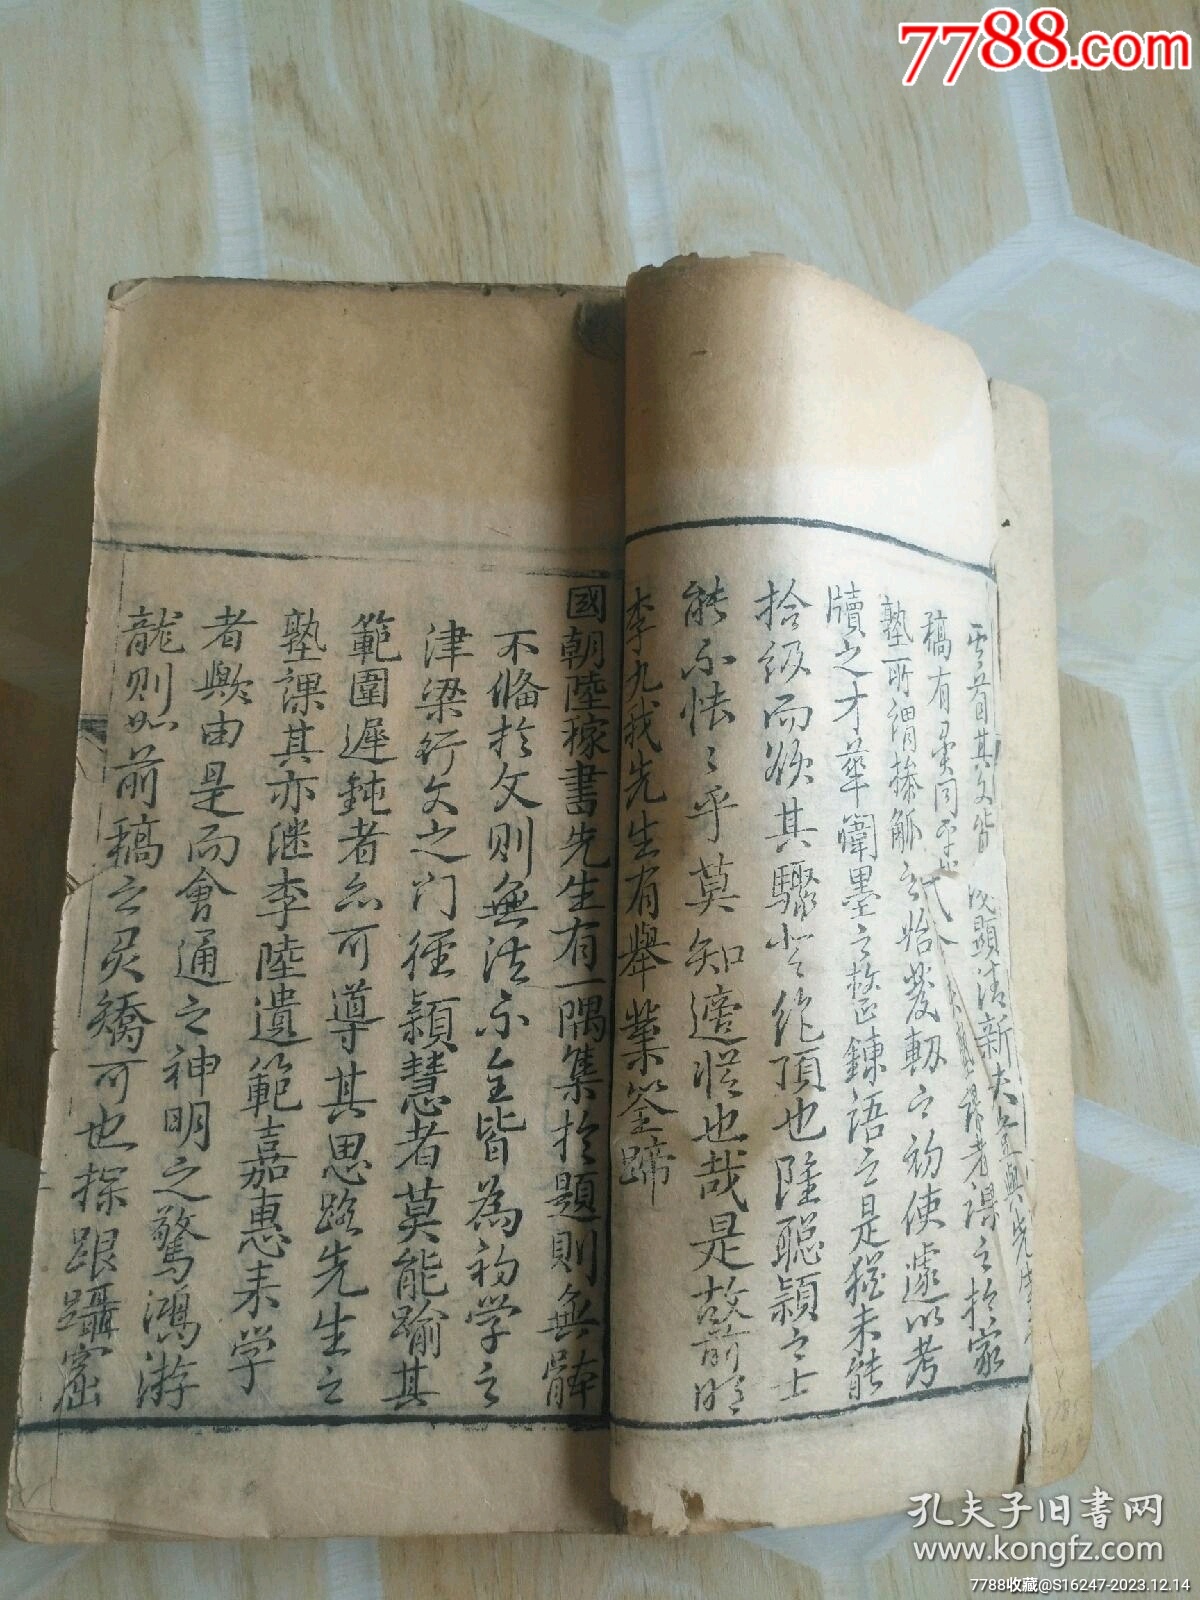 7788.com
稿有
塾所謂操觚之始發軔之初使遽以考
牘之才華闈墨之整鍊語之是猶未能
拾級而欲其驟登绝頂也陸聪頴之士
能不怯之乎莫知遵從也哉是故前明
李九我先生有舉業筌蹄
國朝陸稼書先生有一隅集扵題則無體
不俻扵文則無法不全皆為初学之
津梁行文之门徑頴慧者莫能踰其
範圍遲鈍者亦可導其思路先生之
塾課其亦继李陸遺範嘉惠来学
者歟由是而會通之神明之驚鴻游
龍则如前稿之灵矯可也探跟躡窟
孔夫子旧書网
www.kongfz.com
7788收藏@S16247-2023.12.14